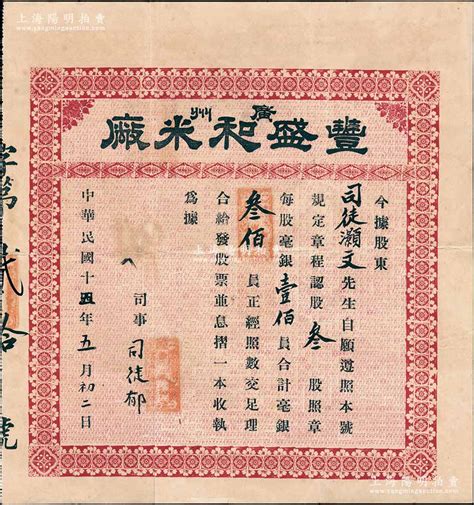 上海陽明拍賣
www.yangmingauction.com
廣州
豐盛和米廠
今據股東
司徒灝文先生自願遵照本號
規定章程認股叁股照章
每股毫銀壹佰員合計毫銀
叁佰員正經照數交足理
合給發股票並息摺一本收執
為據
司事 司徒郁
中華民國十五年五月初二日
字第貳拾號
上海陽明拍賣
www.yangmingauction.com